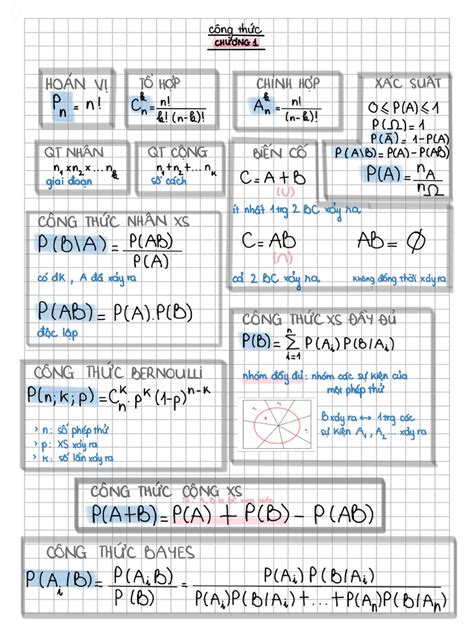 công thức
CHƯƠNG 1
HOÁN VỊ
Pn = n!
TỔ HỢP
C^k_n = n!/k!(n-k)!
CHỈNH HỢP
A^k_n = n!/(n-k)!
XÁC SUẤT
0 ≤ P(A) ≤ 1
P(Ω) = 1
P(A̅) = 1-P(A)
P(A\B) = P(A) - P(AB)
P(A) = n_A/n_Ω
QT NHÂN
n₁×n₂×... n_k
giai đoạn
QT CỘNG
n₁+n₂+... n_k
số cách
BIẾN CỐ
C = A + B
(∪)
ít nhất 1 trg 2 BC xảy ra
C = AB
(∩)
cả 2 BC xảy ra
AB = ∅
không đồng thời xảy ra
CÔNG THỨC NHÂN XS
P(B\A) = P(AB)/P(A)
có đk, A đã xảy ra
P(AB) = P(A).P(B)
độc lập
CÔNG THỨC XS ĐẦY ĐỦ
P(B) = Σ^n_{i=1} P(A_i) P(B/A_i)
nhóm đầy đủ: nhóm các sự kiện của
một phép thử
B xảy ra ↔ 1 trg các
sự kiện A₁, A₂ ... xảy ra
CÔNG THỨC BERNOULLI
P(n; k; p) = C^k_n . p^k (1-p)^{n-k}
> n: số phép thử
> p: XS xảy ra
> k: số lần xảy ra
CÔNG THỨC CỘNG XS
P(A+B) = P(A) + P(B) - P(AB)
CÔNG THỨC BAYES
P(A_i/B) = P(A_iB)/P(B) = P(A_i) P(B/A_i)/P(A₁)P(B/A₁) + ... + P(A_n)P(B/A_n)